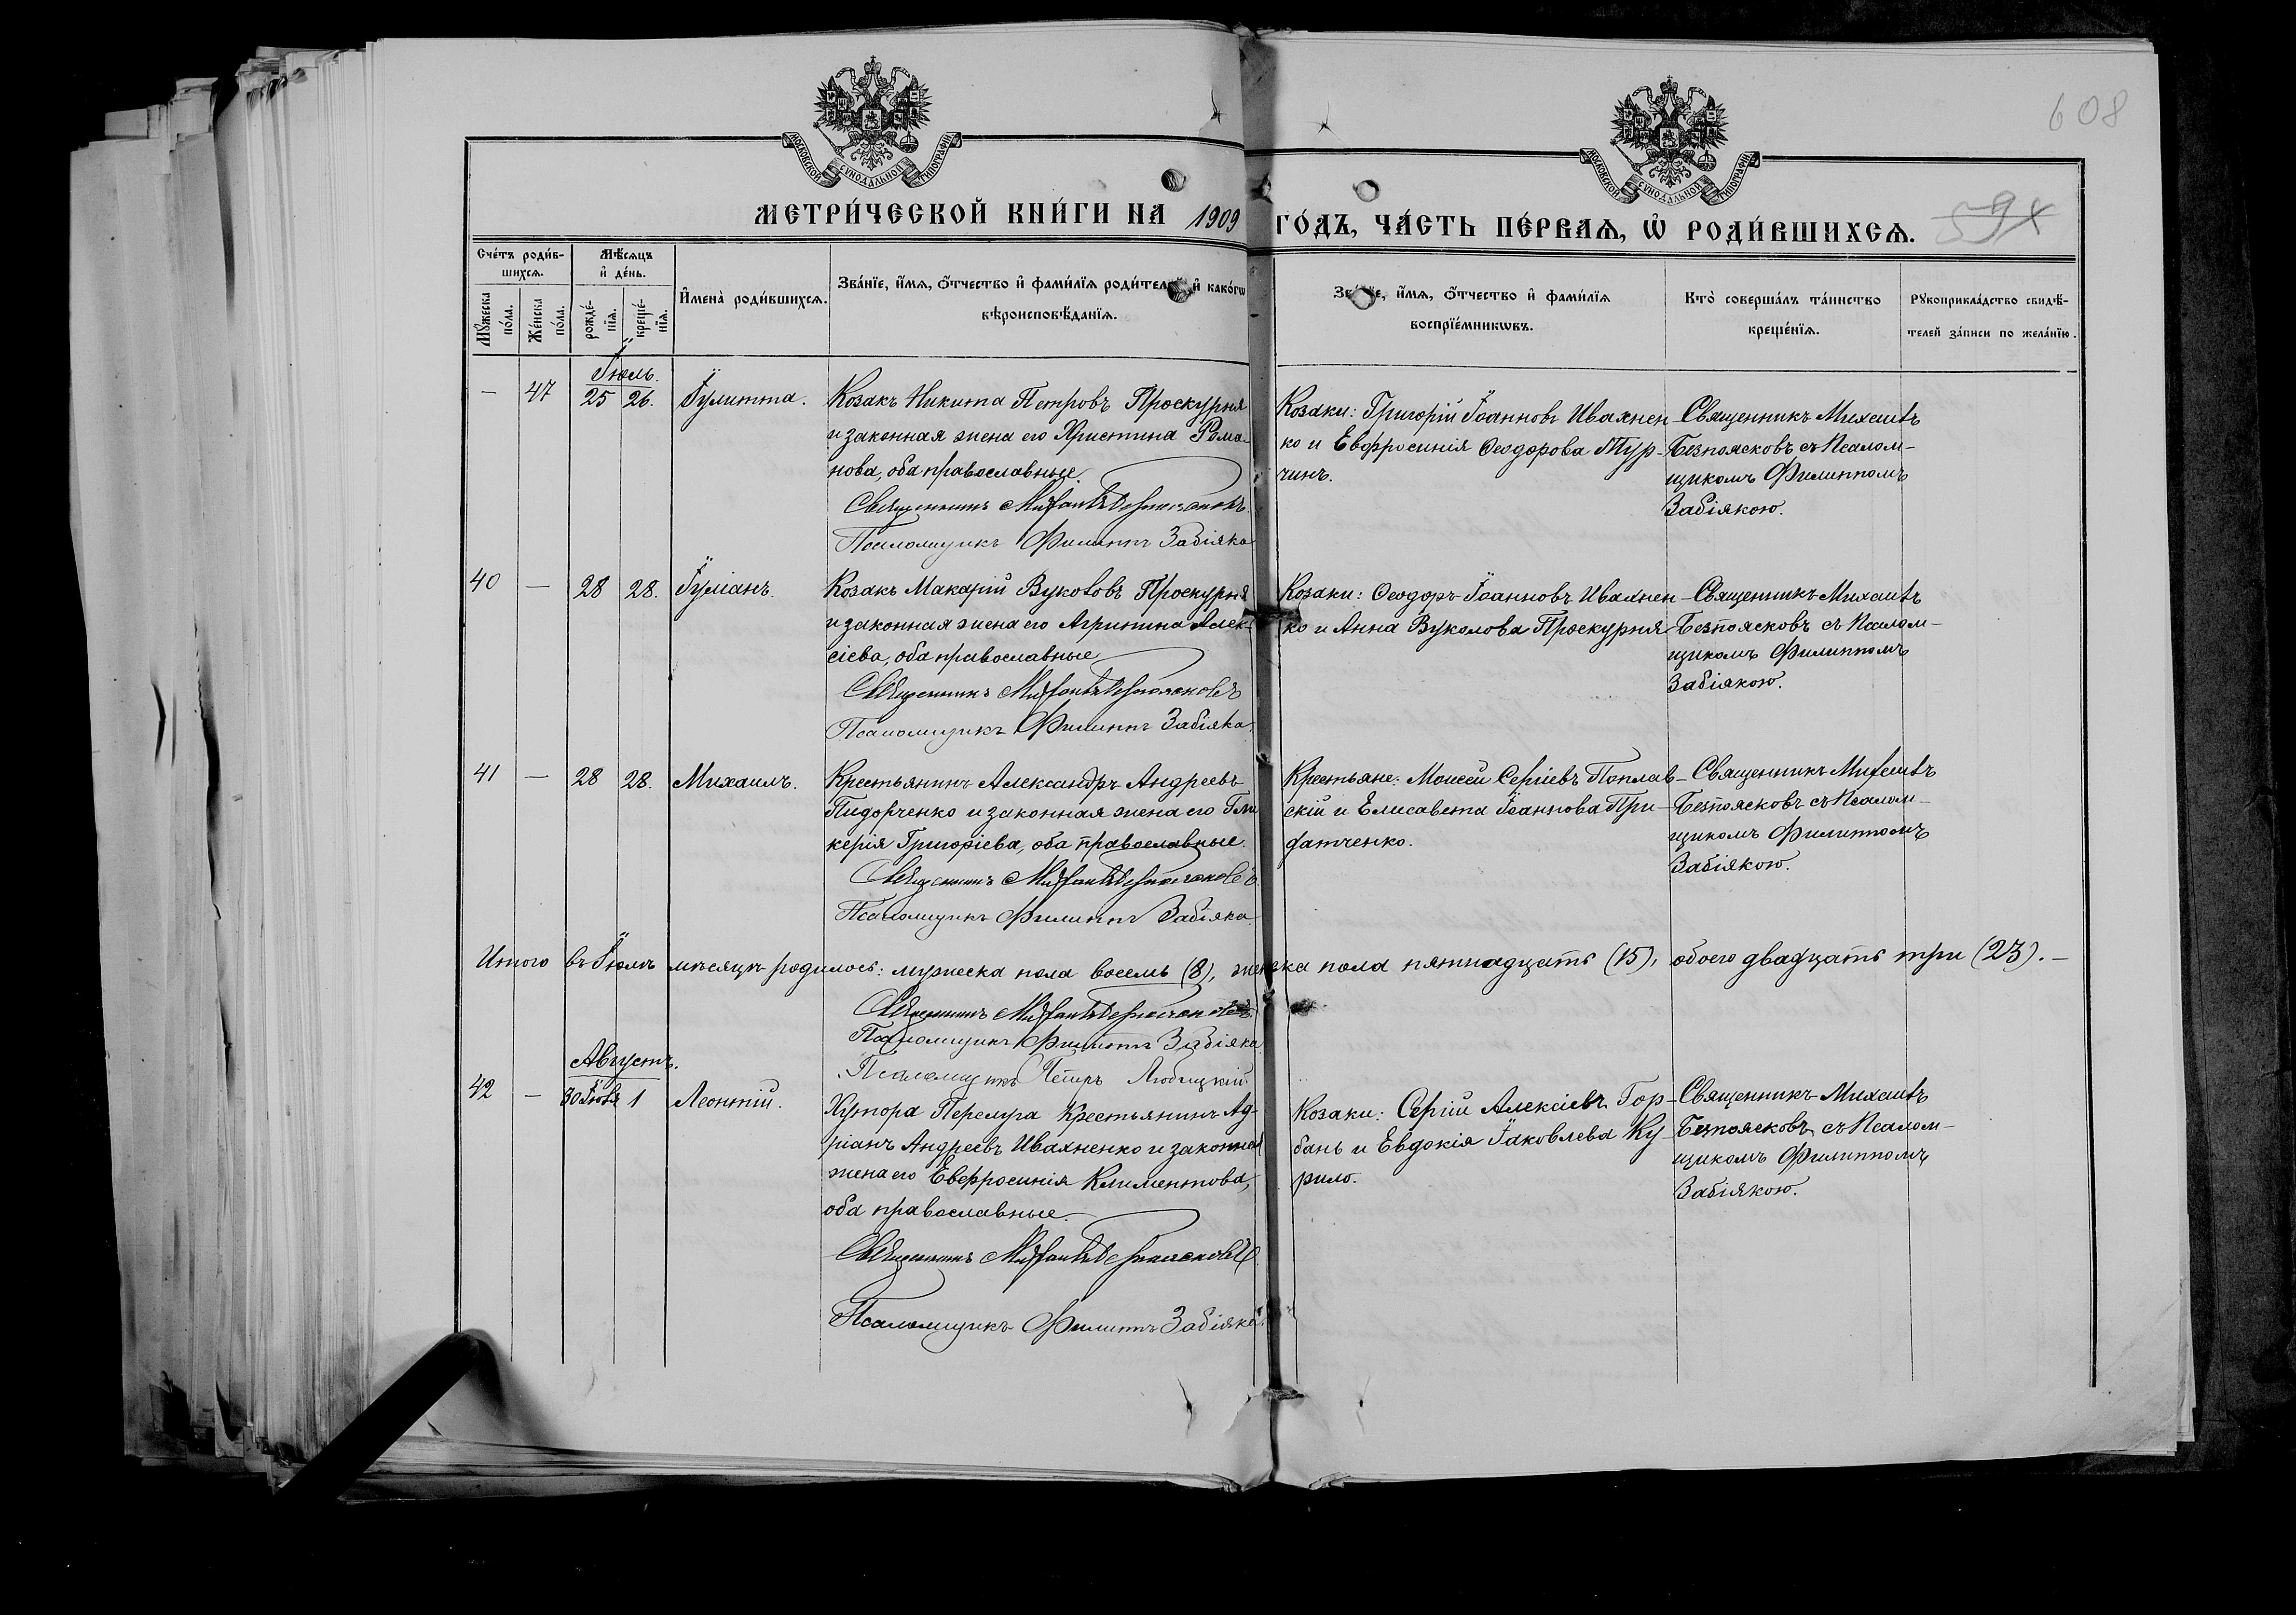 608
МОСКОВСКОЙ СѴНОДАЛЬНОЙ ТИПОГРАФІИ
МОСКОВСКОЙ СѴНОДАЛЬНОЙ ТИПОГРАФІИ
МЕТРИ́ЧЕСКОЙ КНИ́ГИ НА 1909 ГО́ДЪ, ЧА́СТЬ ПЕ́РВАѦ, Ѡ҆ РОДИ́ВШИХСѦ.
Сче́тъ роди́в-
шихсѧ.
Мꙋ́жеска по́ла.
Же́нска по́ла.
Мѣ́сѧцъ
и҆ де́нь.
рожде́-
нїѧ.
креще́-
нїѧ.
И҆мена̀ роди́вшихсѧ.
Зва́нїе, и҆́мѧ, ѻ҆́тчество и҆ фами́лїѧ роди́телей и҆ како́гѡ
вѣроисповѣ́данїѧ.
Зва́нїе, и҆́мѧ, ѻ҆́тчество и҆ фами́лїѧ
воспрїе́мникѡвъ.
Кто̀ соверша́лъ та́инство
креще́нїѧ.
Рꙋкоприкла́дство свидѣ́-
телей за́писи по жела́нїю.
Іюль.
— 47 25 26. Іулитта.
Козакъ Никита Петровъ Проскурня
и законная жена его Христина Рома-
нова, оба православные.
Священникъ Михаилъ Безпоясковъ
Псаломщикъ Филиппъ Забіяка
Козаки: Григорій Іоанновъ Ивахнен-
ко и Евфросинія Ѳеодорова Тур-
чинъ.
Священникъ Михаилъ
Безпоясковъ съ Псалом-
щикомъ Филиппомъ
Забіякою.
40 — 28 28. Іуліанъ.
Козакъ Макарій Вуколовъ Проскурня
и законная жена его Агрипина Алек-
сіева, оба православные
Священникъ Михаилъ Безпоясковъ
Псаломщикъ Филиппъ Забіяка.
Козаки: Ѳеодоръ Іоанновъ Ивахнен-
ко и Анна Вуколова Проскурня
Священникъ Михаилъ
Безпоясковъ съ Псалом-
щикомъ Филиппомъ
Забіякою.
41 — 28 28. Михаилъ.
Крестьянинъ Александръ Андреевъ
Пидорченко и законная жена его Гли-
керія Григоріева, оба православные.
Священникъ Михаилъ Безпоясковъ
Псаломщикъ Филиппъ Забіяка
Крестьяне: Моисей Сергіевъ Поплав-
скій и Елисавета Іоаннова При-
датченко.
Священникъ Михаилъ
Безпоясковъ съ Псалом-
щикомъ Филиппомъ
Забіякою.
Итого въ Іюлѣ мѣсяцѣ родилось: мужеска пола восемь (8), женска пола пятнадцать (15), обоего двадцать три (23). —
Священникъ Михаилъ Безпоясковъ
Псаломщикъ Филиппъ Забіяка
Псаломщикъ Петръ
Августъ.
42 — 30 Іюля 1 Леонтій.
Хутора Перелуга Крестьянинъ Ад-
ріанъ Андреевъ Ивахненко и законная
жена его Евфросинія Климентова,
оба православные.
Священникъ Михаилъ Безпоясковъ
Псаломщикъ Филиппъ Забіяка.
Козаки: Сергій Алексіевъ Гор-
бань и Евдокія Іаковлева Ку-
рило.
Священникъ Михаилъ
Безпоясковъ съ Псалом-
щикомъ Филиппомъ
Забіякою.